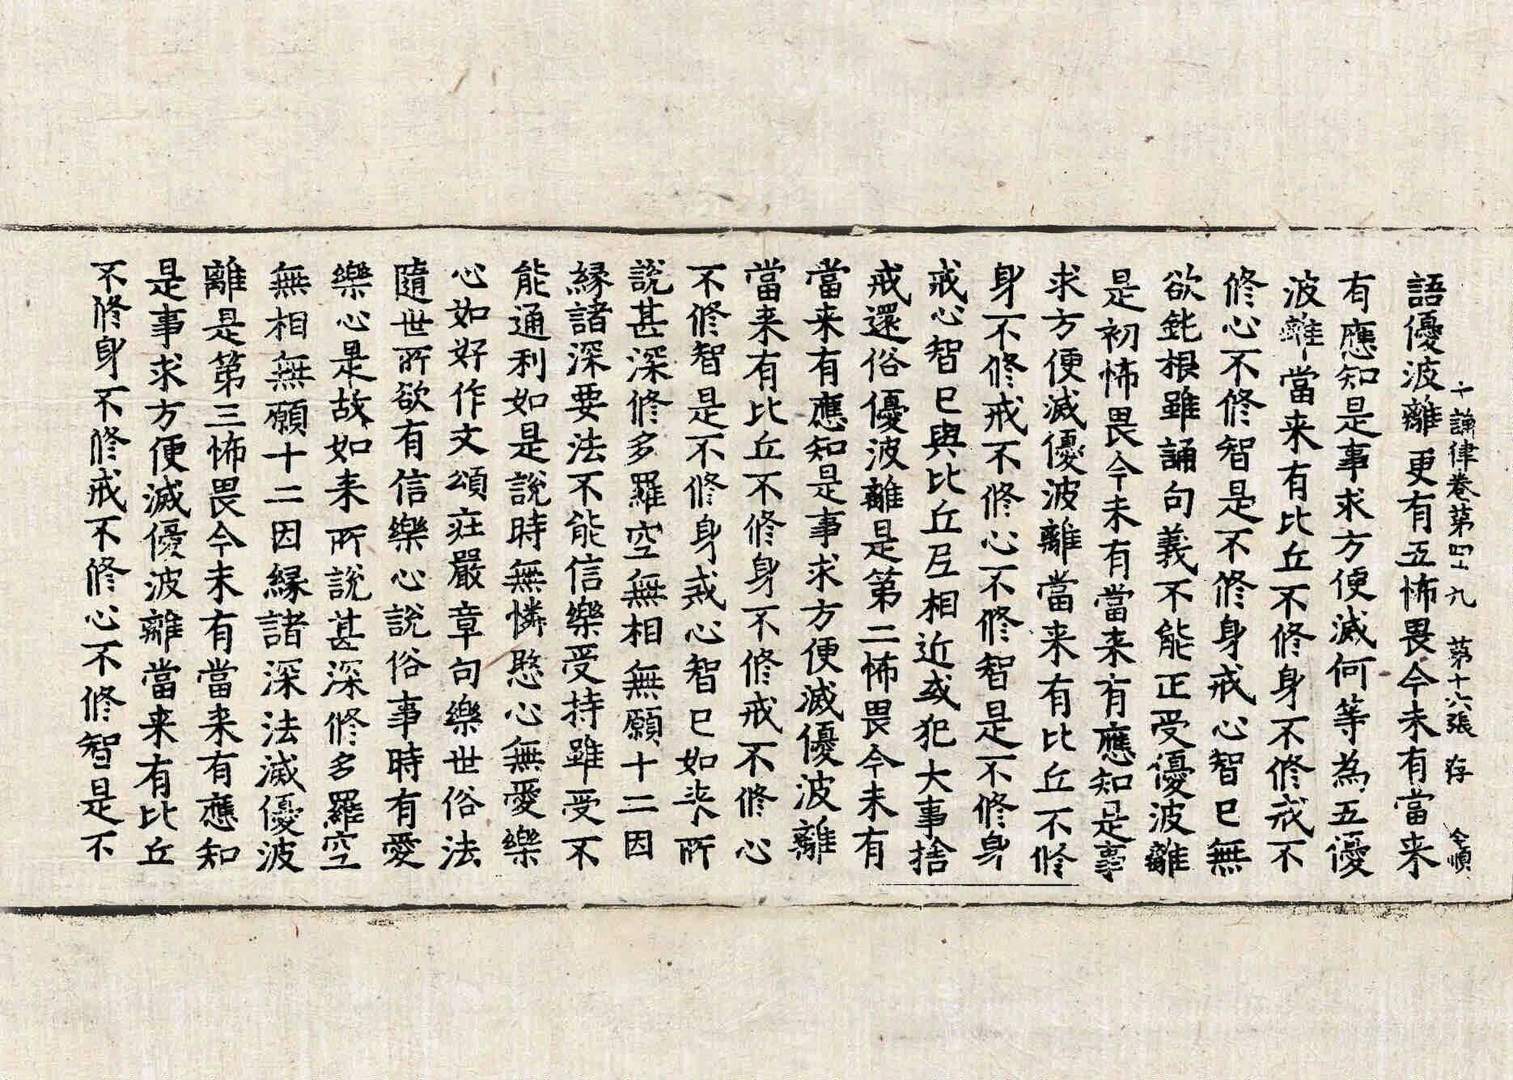 十誦律卷第四十九 第十六張 存 金順
語優波離更有五怖畏今未有當来
有應知是事求方便滅何等為五優
波離當来有比丘不修身不修戒不
修心不修智是不修身戒心智已無
欲鈍根雖誦句義不能正受優波離
是初怖畏今未有當来有應知是事
求方便滅優波離當来有比丘不修
身不修戒不修心不修智是不修身
戒心智已與比丘尼相近或犯大事捨
戒還俗優波離是第二怖畏今未有
當来有應知是事求方便滅優波離
當来有比丘不修身不修戒不修心
不修智是不修身戒心智已如来所
說甚深修多羅空無相無願十二因
縁諸深要法不能信樂受持雖受不
能通利如是說時無憐愍心無愛樂
心如好作文頌莊嚴章句樂世俗法
隨世所欲有信樂心說俗事時有愛
樂心是故如来所說甚深修多羅空
無相無願十二因縁諸深法滅優波
離是第三怖畏今未有當来有應知
是事求方便滅優波離當来有比丘
不修身不修戒不修心不修智是不